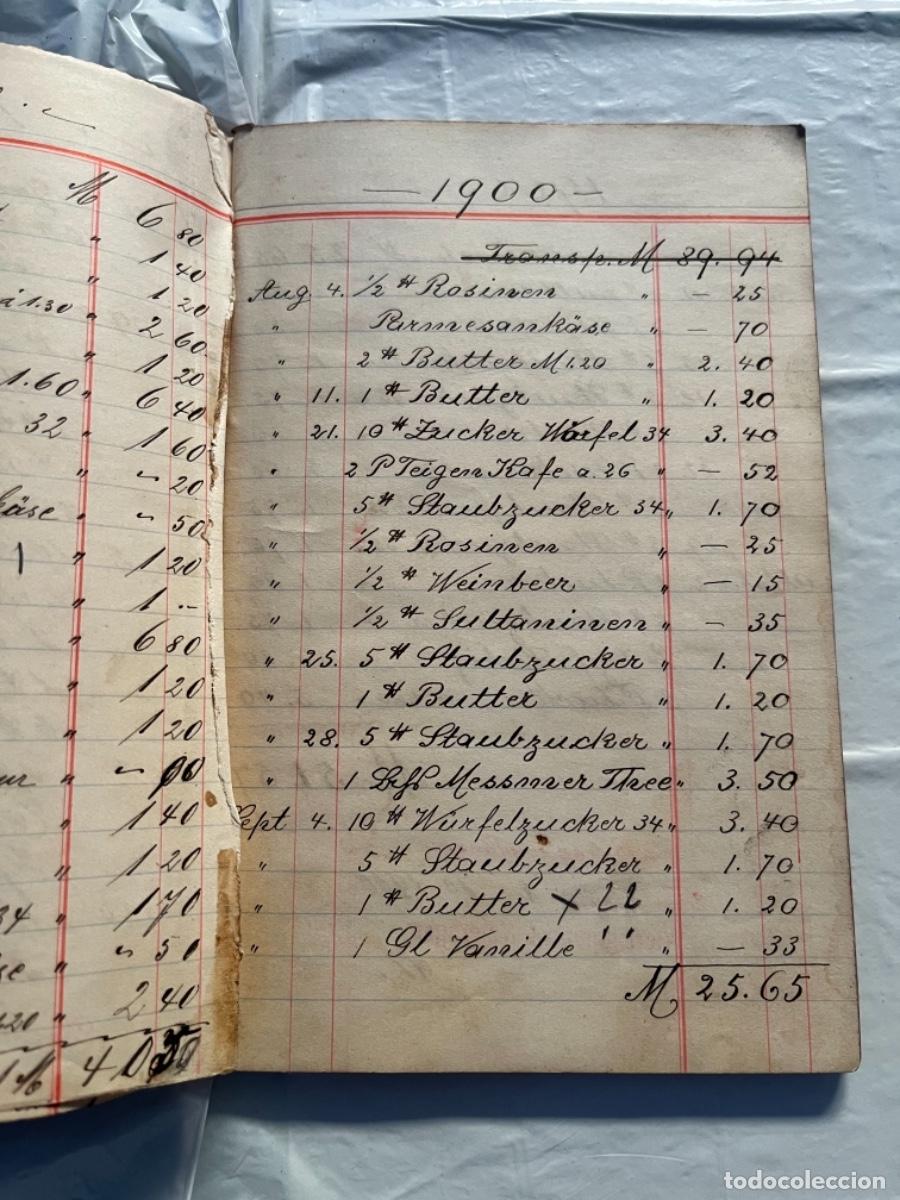 M
6 80
" 1 40
" 1 20
à 1.30 " 2 60
" 1 20
1.60 " 6 40
32 " 1 60
" ~ 20
käse " ~ 50
" 1 20
" 1 --
" 6 80
" 1 20
" 1 20
" ~
" 1 40
" 1 20
34 " 1 70
" ~ 50
1.20 " 2 40
M 40
— 1900 —
Transp. M 39. 94
Aug. 4. 1/2 ℔ Rosinen " — 25
" Parmesankäse " — 70
" 2 ℔ Butter M 1.20 " 2. 40
" 11. 1 ℔ Butter " 1. 20
" 21. 10 ℔ Zucker Würfel 34 3. 40
" 2 P Feigen Kafe a. 26 " — 52
" 5 ℔ Staubzucker 34 " 1. 70
" 1/2 ℔ Rosinen " — 25
" 1/2 ℔ Weinbeer " — 15
" 1/2 ℔ Sultaninen " — 35
" 25. 5 ℔ Staubzucker " 1. 70
" 1 ℔ Butter " 1. 20
" 28. 5 ℔ Staubzucker " 1. 70
" 1 Messmer Thee " 3. 50
Sept 4. 10 ℔ Würfelzucker 34 " 3. 40
" 5 ℔ Staubzucker " 1. 70
" 1 ℔ Butter x 22 " 1. 20
" 1 Gl Vanille " " — 33
M 25.65
todocoleccion